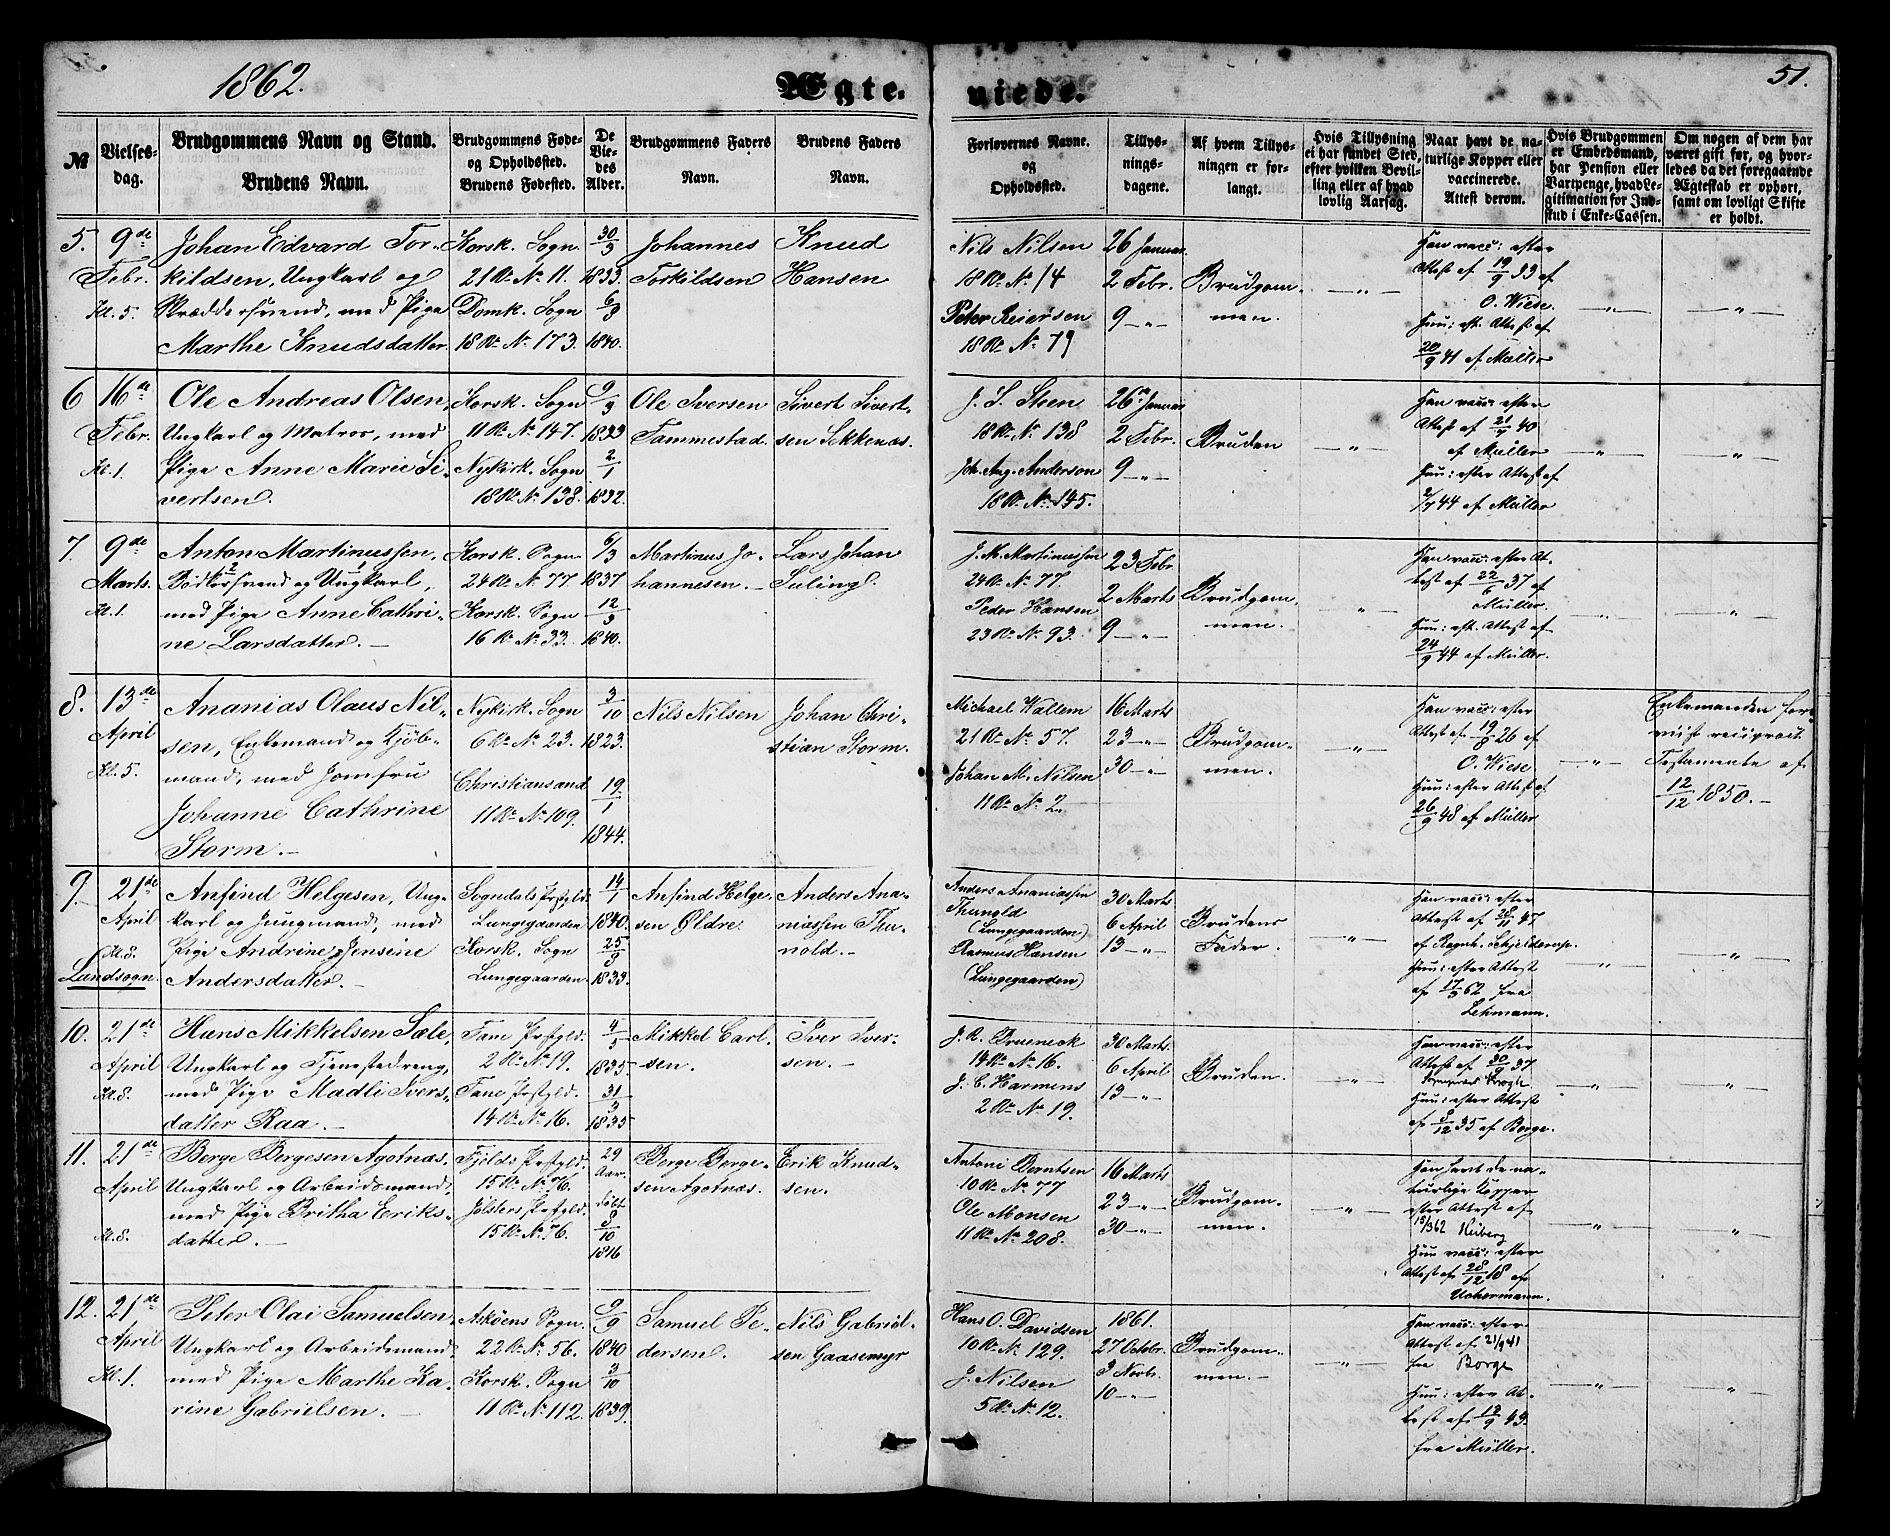 1862.
Ægte.
viede.
51.
№
Vielses-
dag.
Brudgommens Navn og Stand.
Brudens Navn.
Brudgommens Føde-
og Opholdssted.
Brudens Fødested.
De
Vie-
des
Alder.
Brudgommens Faders
Navn.
Brudens Faders
Navn.
Forlovernes Navne.
og
Opholdssted.
Tillys-
nings-
dagene.
Af hvem Tillys-
ningen er for-
langt.
Hvis Tillysning
ei har fundet Sted,
efter hvilken Bevil-
ling eller af hvad
lovlig Aarsag.
Naar havt de na-
turlige Kopper eller
vaccinerede.
Attest derom.
Hvis Brudgommen
er Embedsmand,
har Pension eller
Vartpenge, hvad Le-
gitimation for Ind-
skud i Enke-Cassen.
Om nogen af dem har
været gift før, og hvor-
ledes da det foregaaende
Ægteskab er ophørt,
samt om lovligt Skifte
er holdt.
5.
9de
Febr.
Kl. 5
Johan Edvard Tor-
kildsen, Ungkarl og
Skræddersvend, med Pige
Marthe Knudsdatter.
Korsk. Sogn
21 R. No 11.
Domk. Sogn
18 R. No 173.
30/3
1833.
6/9
1840.
Johannes
Torkildsen
Knud
Hansen
Nils Nilsen
18 R. No 14
Peter Reiersen
18 R. No 79
26 Januar
2 Febr.
9 — „
Brudgom-
men.
— „ —
Han vacc: efter
Attest af 19/9 33 af
O. Wiese.
Hun: eft. Attest af
20/9 41 af Müller
— „ —
— „ —
6
16de
Febr.
Kl. 1.
Ole Andreas Olsen,
Ungkarl og Matros, med
Pige Anne Marie Si-
vertsen.
Korsk. Sogn
11 R. No 147.
Nykirk. Sogn
18 R. No 138.
9/9
1833
2/1
1832.
Ole Iversen
Tammestad.
Sivert Sivert-
sen Sekkenæs.
J. S. Steen
18 R. No 138
Joh. Aug. Anderson
18 R. No 145.
26de Januar
2 Febr.
9 — „
Bruden
— „ —
Han vacc: efter
Attest af 21/7 40
af Müller
Hun: efter Attest af
2/7 44 af Müller
— „ —
— „ —
7
9de
Marts.
Kl. 1.
Anton Martinussen,
Bødkersvend og Ungkarl,
med Pige Anne Cathri-
ne Larsdatter. —
Korsk. Sogn
24 R. No 77
Korsk. Sogn
16 R. No 33.
6/3
1837
12/3
1840.
Martinus Jo-
hannesen. —
Lars Johan
Suling.
J. M. Martinussen
24 R. No 77.
Peder Hansen
23 R. No 93.
23 Febr.
2 Marts
9 — „
Brudgom-
men.
„
Han vacc: efter At-
test af 22/6 37 af
Müller.
Hun: eft. Attest af
24/9 44 af Müller.
— „ —
„
8.
13de
April
Kl. 5.
Ananias Olaus Nil-
sen, Enkemand og Kjøb-
mand, med Jomfru
Johanne Cathrine
Storm. —
Nykirk. Sogn
6 R. No 23.
Christiansand
11 R. No 109.
3/10
1823.
19/1
1844.
Nils Nilsen
Johan Chri-
stian Storm.
Michael Wallem
21 R. No 57.
Johan M. Nilsen
11 R. No 2.
16 Marts
23 — „
30 — „
Brudgom-
men.
— „ —
Han vacc: efter
Attest af 19/8 26 af
O. Wiese.
Hun: efter Attest af
26/9 48 af Müller
— „ —
Enkemanden fore-
viist reciproct
Testamente af
12/12 1850. —
9.
21de
April
Kl. 8.
Landsogn.
Anfind Helgesen, Ung-
karl og Jungmand, med
Pige Andrine Jensine
Andersdatter. —
Sogndals Prstgld.
Lungegaarden
Korsk. Sogn
Lungegaarden
14/1
1840.
25/9
1833.
Anfind Helge-
sen Øldre.
Anders Ana-
niassen Thu-
nold. —
Anders Ananiassen
Thunold
(Lungegaarden)
Rasmus Hansen
(Lungegaarden)
30 Marts
6 April
13 — „
Brudens
Fader.
— „ —
Han vacc: efter
Attest af 28/11 47
af Regmb. Schjelderup.
Hun: efter Attest
af 17/3 62 fra
Lehmann.
— „ —
— „ —
10.
21de
April
Kl. 8.
Hans Mikkelsen Sæle,
Ungkarl og Tjenestedreng,
med Pige Madli Ivers-
datter Raa. —
Fane Prstgld.
2 R. No 19.
Fane Prstgld.
14 R. No 16.
4/5
1835.
31/3
1835
Mikkel Carl-
sen.
Iver Iver-
sen. —
J. R. Grueneck
14 R. No 16.
J. C. Harmens
2 R. No 19.
30 Marts.
6 April
13 — „
Bruden.
— „ —
Han vacc: efter
Attest af 30/9 37
Hun: efter Attest
af 8/12 35 af Borge.
„
„
11.
21de
April
Kl. 8.
Børge Børgesen Agotnæs,
Ungkarl og Arbeidsmand,
med Pige Britha Eriks-
datter. —
Fjelds Prstgld.
15 R. No 76.
Jølsters Prstgld.
15 R. No 76.
29
Aar.
døbt
8/10
1816
Børge Børge-
sen Agotnæs.
Erik Knud-
sen.
Antoni Berntsen
10 R. No 77
Ole Monsen
11 R. No 208.
16 Marts
23 — „
30 — „
Brudgom-
men.
— „ —
Han havt de na-
turlige Kopper
efter Attest af
18/3 62 Heiberg
Hun vacc: efter
Attest af 28/12 18 af
Uchermann.
— „ —
„
12.
21de
April
Kl. 1.
Peter Olai Samuelsen,
Ungkarl og Arbeidsmand,
med Pige Marthe Ka-
rine Gabrielsen. —
Askøens Sogn.
22 R. No 56.
Korsk. Sogn
11 R. No 112.
9/9
1840
3/10
1839.
Samuel Pe-
dersen.
Nils Gabriel-
sen Gaasemyr
Hans O. Davidsen
10 R. No 129.
J. Nilsen
5 R. No 12.
1861.
27 Octobr.
3 Novbr.
10 — „
Brudgom-
men. —
— „ —
Han vacc: efter
Attest af 21/9 41
fra Borge
Hun: efter At-
test af 13/9 43.
fra Müller.
— „ —
„